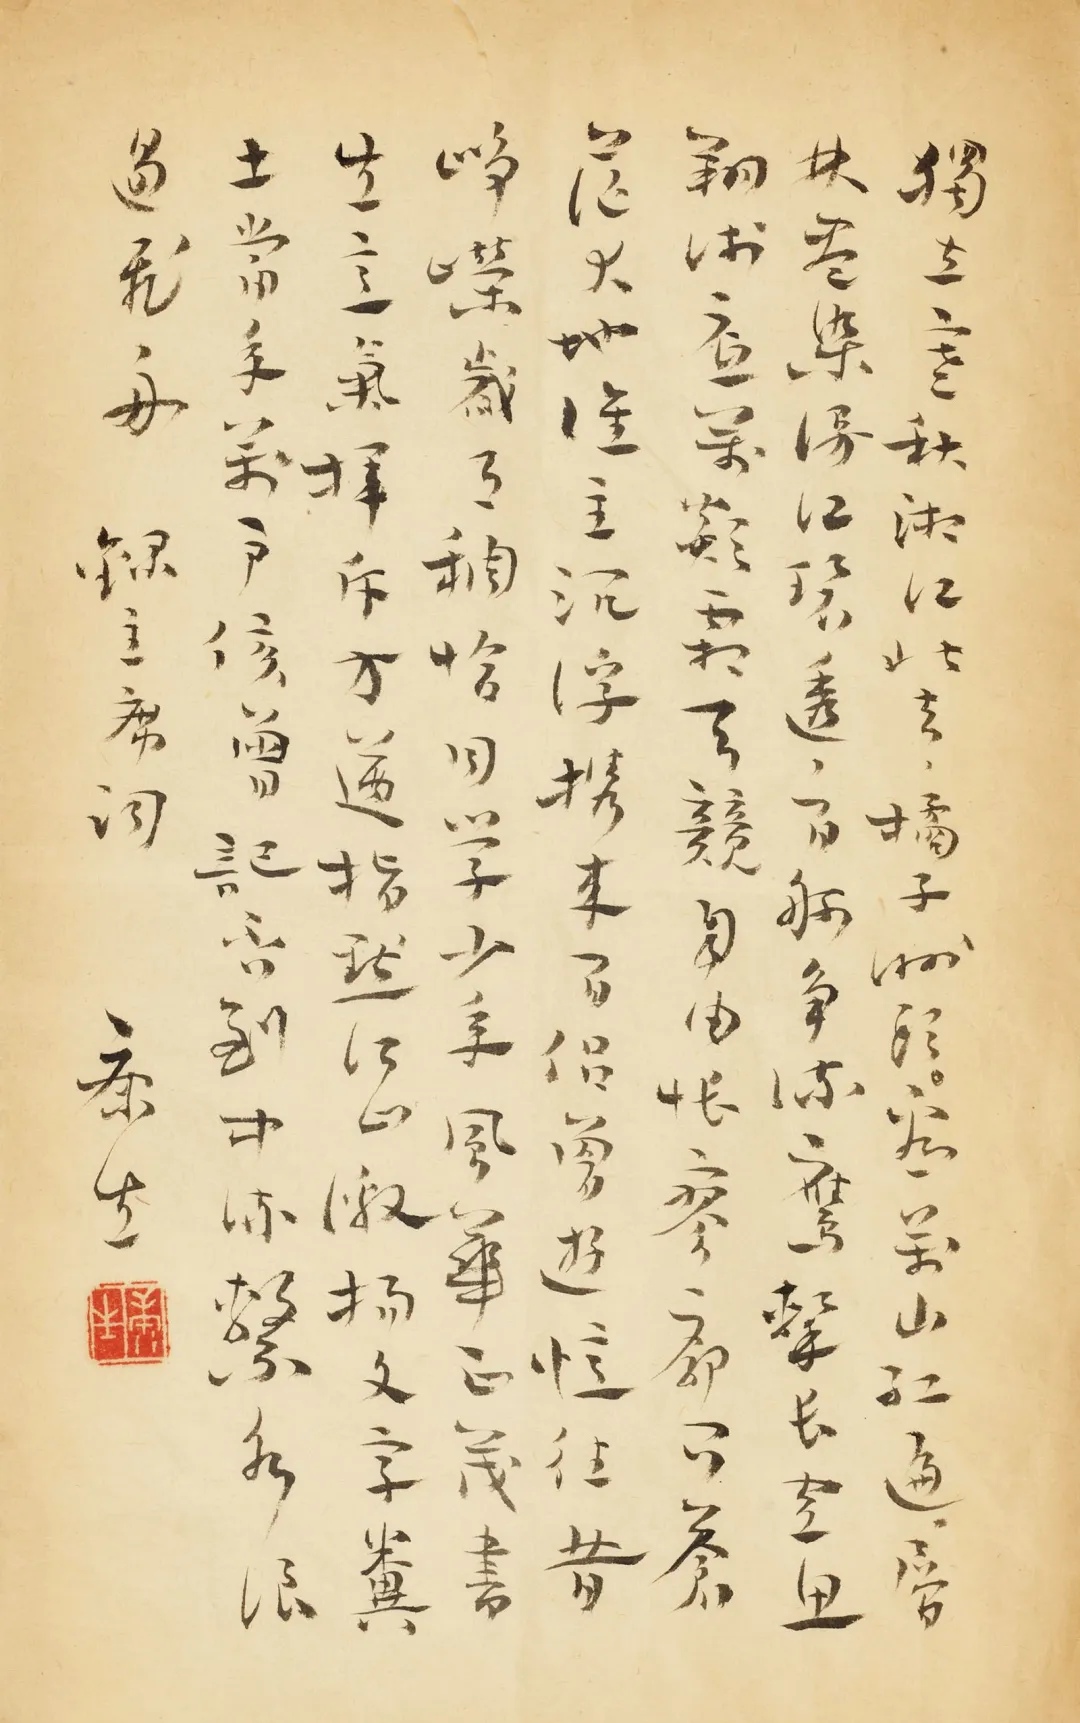 獨立寒秋湘江北去、橘子洲頭。看萬山紅遍、層
林盡染漫江碧透、百舸争流鷹擊長空魚
翔淺底萬類霜天競自由悵寥廓問蒼
茫大地誰主沉浮携来百侣曾遊憶往昔
崢嶸歲月稠恰同学少年風華正茂書
生意氣揮斥方遒指點江山激揚文字糞
土當年萬户侯曾記否到中流擊水浪
遏飛舟 錄主席詞 康生
康生